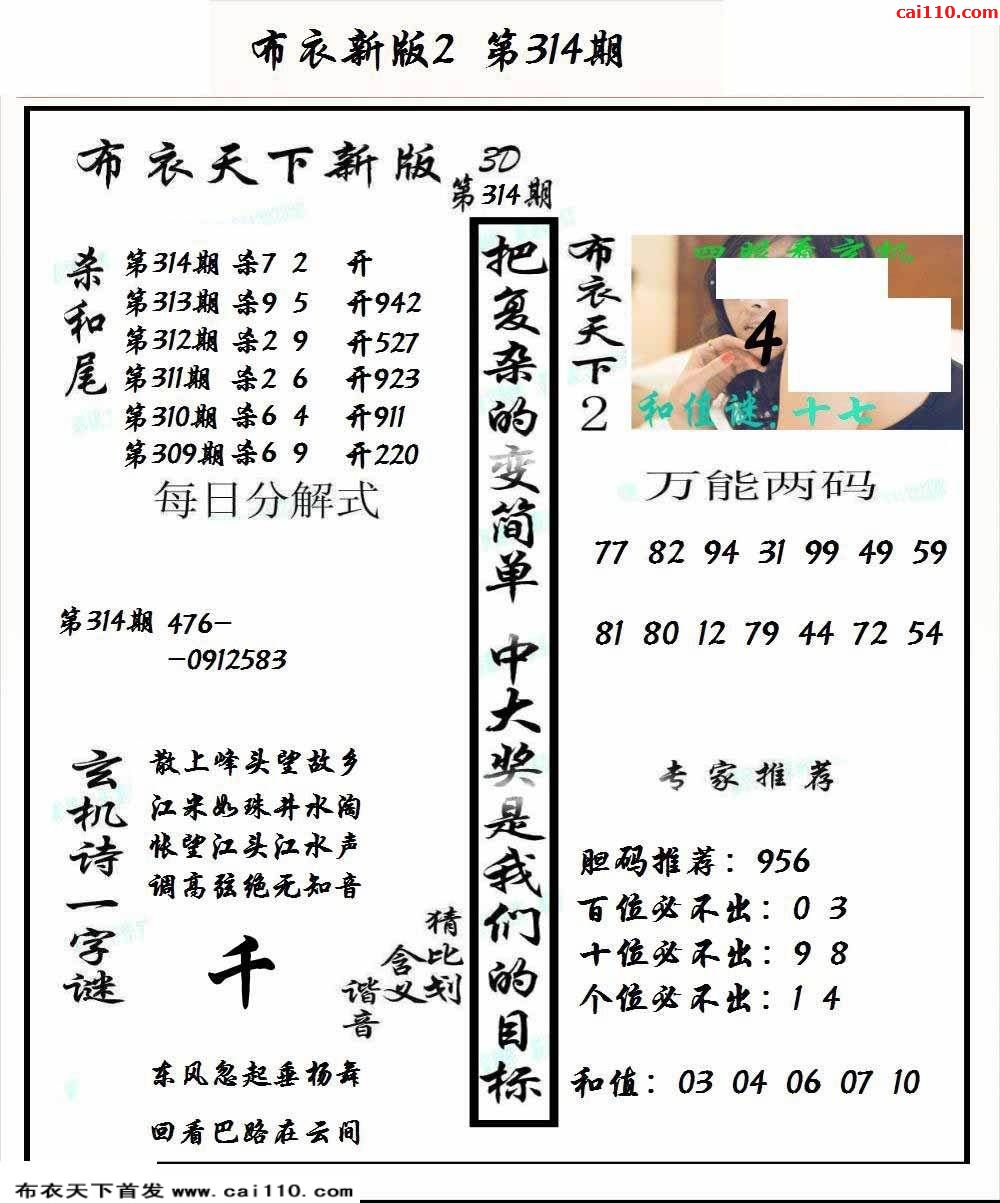 cai110.com
布衣新版2 第314期
布衣天下新版
3D
第314期
杀和尾
第314期 杀7 2 开
第313期 杀9 5 开942
第312期 杀2 9 开527
第311期 杀2 6 开923
第310期 杀6 4 开911
第309期 杀6 9 开220
每日分解式
第314期 476-
-0912583
玄机诗一字谜
散上峰头望故乡
江米如珠井水淘
怅望江头江水声
调高弦绝无知音
千
猜比划
含义
谐音
东风忽起垂杨舞
回看巴路在云间
把复杂的变简单 中大奖是我们的目标
布衣天下2
4
和值谜:十七
万能两码
77 82 94 31 99 49 59
81 80 12 79 44 72 54
专家推荐
胆码推荐：956
百位必不出：0 3
十位必不出：9 8
个位必不出：1 4
和值：03 04 06 07 10
布衣天下首发 www.cai110.com